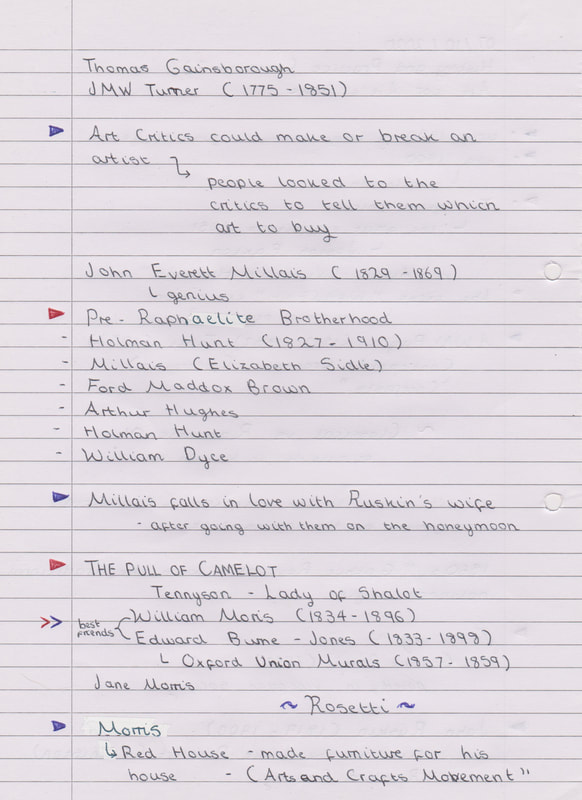 Thomas Gainsborough
JMW Turner (1775-1851)
Art Critics could make or break an
artist
people looked to the
critics to tell them which
art to buy
John Everett Millais (1829-1869)
genius
Pre-Raphaelite Brotherhood
- Holman Hunt (1827-1910)
- Millais (Elizabeth Sidle)
- Ford Maddox Brown
- Arthur Hughes
- Holman Hunt
- William Dyce
Millais falls in love with Ruskin's wife
- after going with them on the honeymoon
THE PULL OF CAMELOT
Tennyson - Lady of Shalot
best friends
William Morris (1834-1896)
Edward Burne-Jones (1833-1899)
Oxford Union Murals (1857-1859)
Jane Morris
~ Rosetti ~
Morris
Red House - made furniture for his
house - (Arts and Crafts Movement"